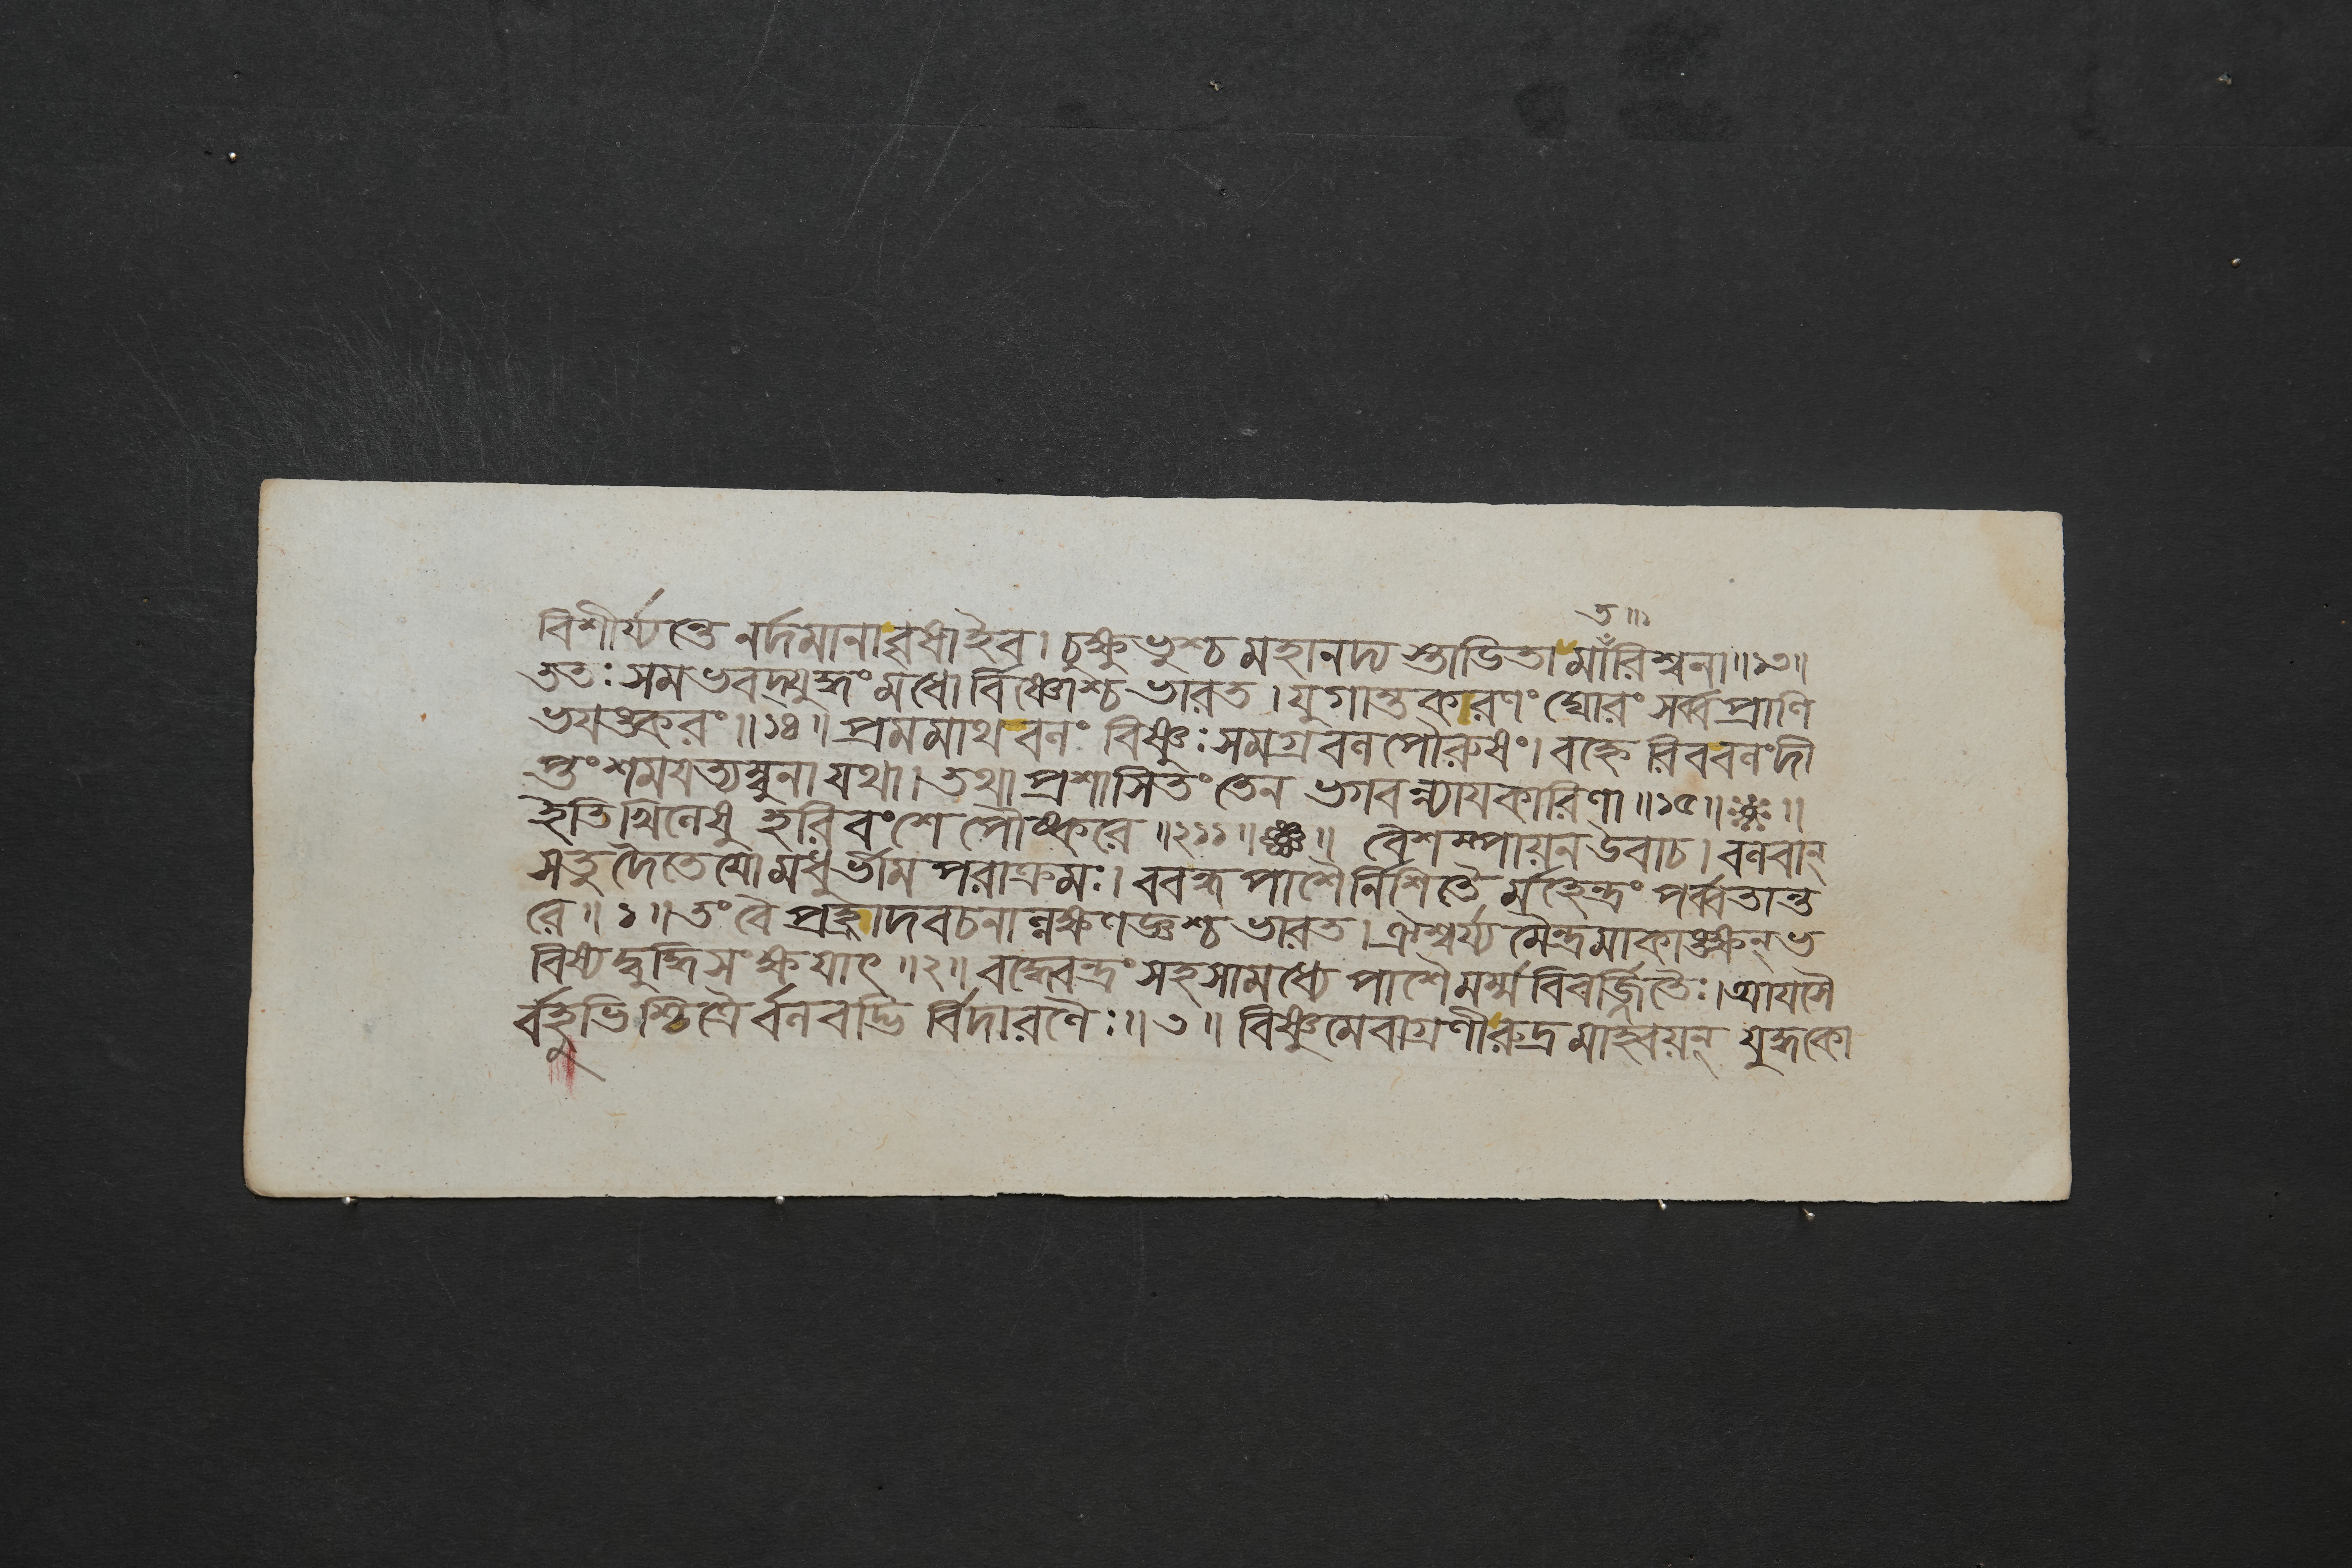 ত॥১
বিশীর্য্যন্তে নর্দমানা বৃষা ইব। চুক্ষুভুশ্চ মহানদ্য স্তাডিতা মাঁরিশ্বনা॥১৩॥
ততঃ সমভবদ্যুদ্ধং মধো র্বিষ্ণোশ্চ ভারত। যুগান্তকারণং ঘোরং সর্ব্বপ্রাণি
ভযঙ্করং॥১৪॥ প্রমমাথ বনং বিষ্ণুঃ সমগ্রবন পৌরুষং। বহ্নে রিববনং দী
প্তং শমযত্যম্বুনা যথা। তথা প্রশাসিতং তেন ভগবন্ন্যাযকারিণা॥১৫॥
ইতি খিনেষু হরিবংশে পৌষ্করে॥২১১॥ বৈশম্পায়ন উবাচ। বনবান্
সতু দৈতেযো মধুর্ভীম পরাক্রমঃ। ববন্ধ পাশৈর্নিশিতৈ র্মহেন্দ্রং পর্ব্বতান্ত
রে॥১॥ তং বৈ প্রহ্লাদবচনান্নক্ষণজ্ঞশ্চ ভারত। ঐশ্বর্য্য মৈন্দ্রমাকাঙ্ক্ষন্ ভ
বিষ্যদ্বুদ্ধিসংক্ষযাৎ॥২॥ বদ্ধ্বেবন্দ্রং সহসামধ্যে পাশৈ মর্ম্ম বিবর্জ্জিতৈঃ। আযসৈ
র্বহুভিশ্চিত্রৈ র্বনবদ্ভি র্বিদারণৈঃ॥৩॥ বিষ্ণুমেবাগ্রণীরুদ্র মাহ্বয়ন্ যুদ্ধকো